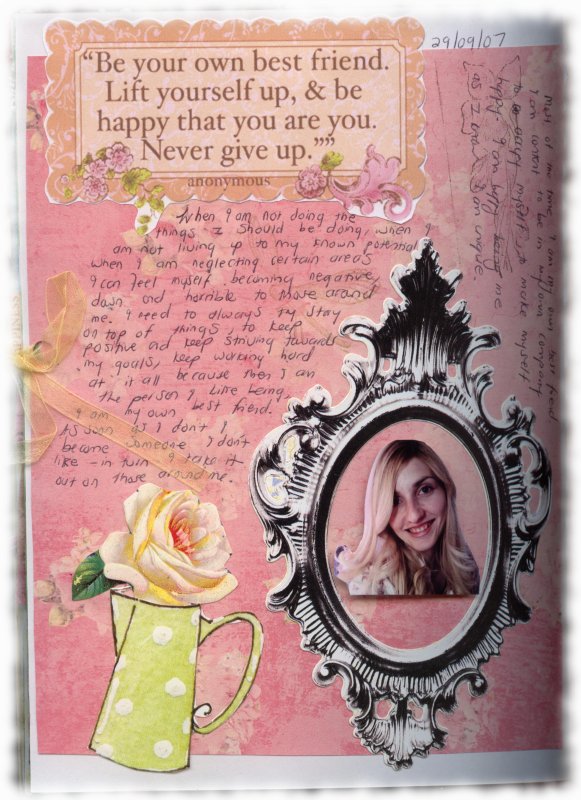 29/09/07
“Be your own best friend.
Lift yourself up, & be
happy that you are you.
Never give up.””
anonymous
When I am not doing the
things I should be doing, when I
am not living up to my known potential
when I am neglecting certain areas
I can feel myself becoming negative,
down and horrible to those around
me. I need to always try stay
on top of things, to keep
positive and keep striving towards
my goals, keep working hard
at it all because then I am
the person I like being,
I am my own best friend.
As soon as I don't I
become someone I don't
like - in turn I take it
out on those around me.
Most of the time I am my own best friend
I am content to be in my own company
to myself to make myself
happy. I am happy being me
as I am. I am unique